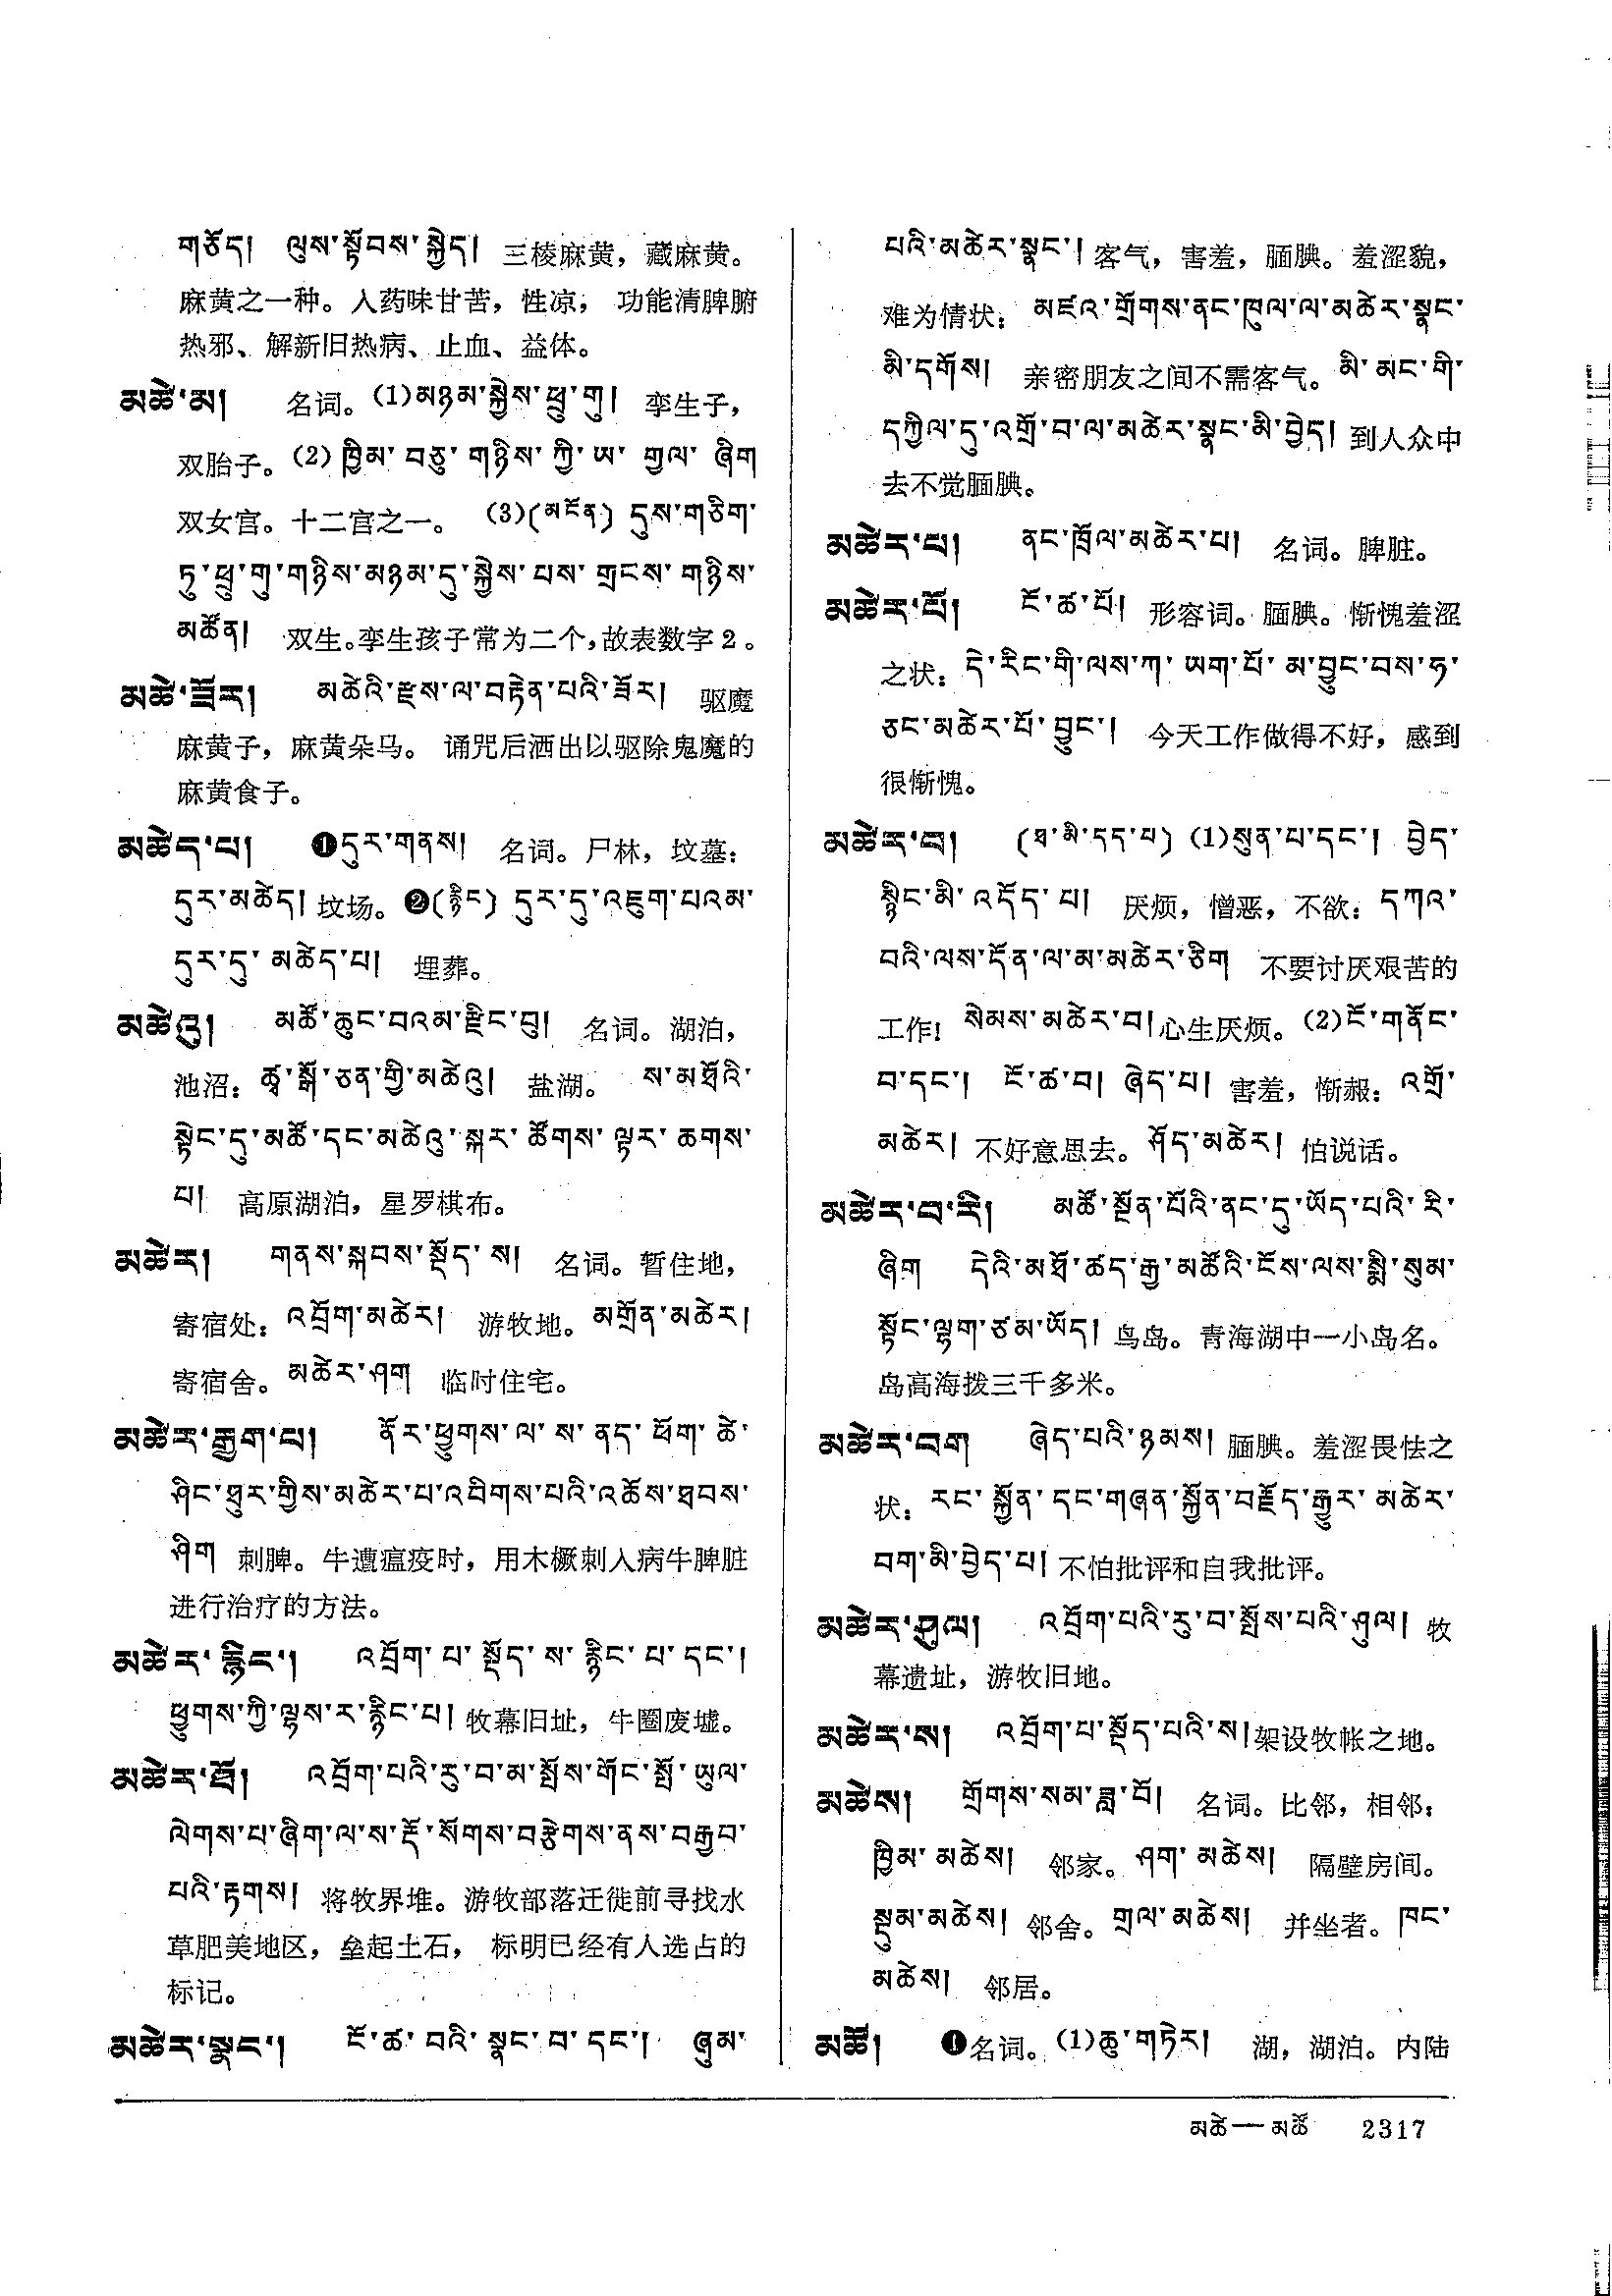 གཅོད། ལུས་སྟོབས་སྐྱེད། 三棱麻黄，藏麻黄。
麻黄之一种。入药味甘苦，性凉， 功能清脾腑
热邪、解新旧热病、止血、益体。
མཚེ་མ། 名词。(1)མཉམ་སྐྱེས་ཕྲུ་གུ། 孪生子，
双胎子。(2) ཁྱིམ་ བཅུ་ གཉིས་ ཀྱི་ ཨ་ གྱལ་ ཞིག
双女宫。十二宫之一。 (3)(མངོན) དུས་གཅིག་
ཏུ་ཕྲུ་གུ་གཉིས་མཉམ་དུ་སྐྱེས་པས་གྲངས་གཉིས་
མཚོན། 双生。孪生孩子常为二个，故表数字2。
མཚེ་ཟོར། མཚེའི་རྫས་ལ་བརྟེན་པའི་ཟོར། 驱魔
麻黄子，麻黄朵马。 诵咒后洒出以驱除鬼魔的
麻黄食子。
མཚེད་པ། ❶དུར་གནས། 名词。尸林，坟墓：
དུར་མཚེད། 坟场。❷(རྙིང) དུར་དུ་འཇུག་པའམ་
དུར་དུ་ མཚེད་པ། 埋葬。
མཚེའུ། མཚོ་ཆུང་བའམ་རྫིང་བུ། 名词。湖泊，
池沼：ཚྭ་སྒོ་ཅན་གྱི་མཚེའུ། 盐湖。 ས་མཐོའི་
སྟེང་དུ་མཚོ་དང་མཚེའུ་སྐར་ཚོགས་ལྟར་ཆགས་
པ། 高原湖泊，星罗棋布。
མཚེར། གནས་སྐབས་སྡོད་ས། 名词。暂住地，
寄宿处：འབྲོག་མཚེར། 游牧地。མགྲོན་མཚེར།
寄宿舍。མཚེར་ཤག 临时住宅。
མཚེར་རྒྱག་པ། ནོར་ཕྱུགས་ལ་ས་ནད་ཕོག་ཚེ་
ཤིང་ཐུར་གྱིས་མཚེར་པ་འབིགས་པའི་འཚོས་ཐབས་
ཤིག 刺脾。牛遭瘟疫时，用木橛刺入病牛脾脏
进行治疗的方法。
མཚེར་རྙིང་། འབྲོག་པ་སྡོད་ས་རྙིང་པ་དང་།
ཕྱུགས་ཀྱི་ལྷས་ར་རྙིང་པ། 牧幕旧址，牛圈废墟。
མཚེར་ཐོ། འབྲོག་པའི་རུ་བ་མ་སྤོས་གོང་སྤོ་ཡུལ་
ལེགས་པ་ཞིག་ལ་ས་རྡོ་སོགས་བརྩེགས་ནས་བརྒྱབ་
པའི་རྟགས། 将牧界堆。游牧部落迁徙前寻找水
草肥美地区，垒起土石， 标明已经有人选占的
标记。
མཚེར་སྣང་། ངོ་ཚ་བའི་སྣང་བ་དང་། ཞུམ་
པའི་མཚེར་སྣང་། 客气，害羞，腼腆。羞涩貌，
难为情状：མཛའ་གྲོགས་ནང་ཁུལ་ལ་མཚེར་སྣང་
མི་དགོས། 亲密朋友之间不需客气。མི་མང་གི་
དཀྱིལ་དུ་འགྲོ་བ་ལ་མཚེར་སྣང་མི་བྱེད། 到人众中
去不觉腼腆。
མཚེར་པ། ནང་ཁྲོལ་མཚེར་པ། 名词。脾脏。
མཚེར་པོ། ངོ་ཚ་པོ། 形容词。腼腆。惭愧羞涩
之状：དེ་རིང་གི་ལས་ཀ་ ཡག་པོ་ མ་བྱུང་བས་ཧ་
ཅང་མཚེར་པོ་བྱུང་། 今天工作做得不好，感到
很惭愧。
མཚེར་བ། (ཐ་མི་དད་པ) (1)སུན་པ་དང་། བྱེད་
སྙིང་མི་འདོད་པ། 厌烦，憎恶，不欲：དཀའ་
བའི་ལས་དོན་ལ་མ་མཚེར་ཅིག 不要讨厌艰苦的
工作！སེམས་མཚེར་བ། 心生厌烦。(2)ངོ་གནོང་
བ་དང་། ངོ་ཚ་བ། ཞེད་པ། 害羞，惭赧：འགྲོ་
མཚེར། 不好意思去。ཤོད་མཚེར། 怕说话。
མཚེར་བ་རི། མཚོ་སྔོན་པོའི་ནང་དུ་ཡོད་པའི་རི་
ཞིག དེའི་མཐོ་ཚད་རྒྱ་མཚོའི་ངོས་ལས་སྨི་སུམ་
སྟོང་ལྷག་ཙམ་ཡོད། 鸟岛。青海湖中一小岛名。
岛高海拨三千多米。
མཚེར་བག ཞེད་པའི་ཉམས། 腼腆。羞涩畏怯之
状：རང་སྐྱོན་དང་གཞན་སྐྱོན་བརྗོད་རྒྱུར་མཚེར་
བག་མི་བྱེད་པ། 不怕批评和自我批评。
མཚེར་ཤུལ། འབྲོག་པའི་རུ་བ་སྤོས་པའི་ཤུལ། 牧
幕遗址，游牧旧地。
མཚེར་ས། འབྲོག་པ་སྡོད་པའི་ས། 架设牧帐之地。
མཚེས། གྲོགས་སམ་ཟླ་བོ། 名词。比邻，相邻：
ཁྱིམ་མཚེས། 邻家。ཤག་མཚེས། 隔壁房间。
སྡུམ་མཚེས། 邻舍。གྲལ་མཚེས། 并坐者。ཁང་
མཚེས། 邻居。
མཚོ། ❶名词。(1)ཆུ་གཏེར། 湖，湖泊。内陆
མཚེ—མཚོ 2317